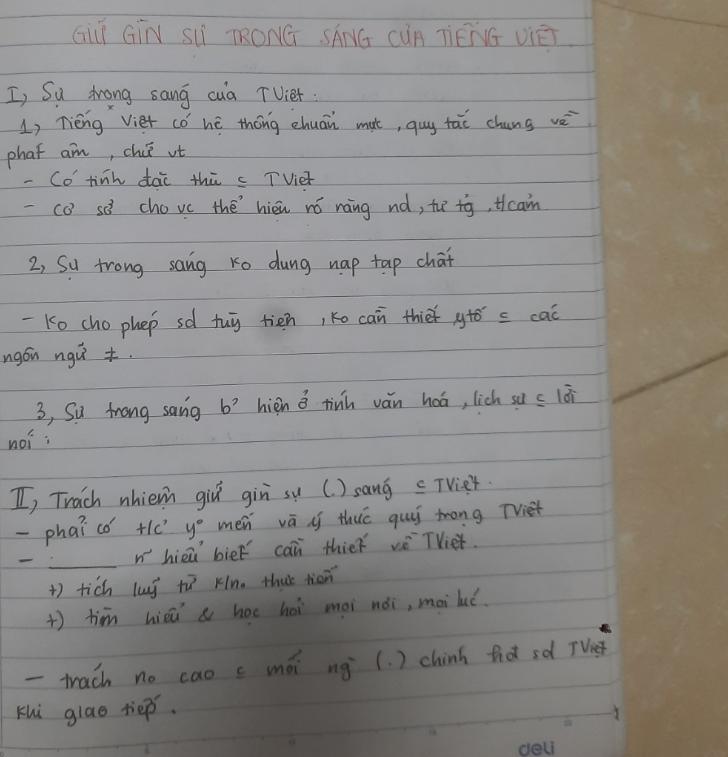 GIỮ GÌN SỰ TRONG SÁNG CỦA TIẾNG VIỆT
I, Sự trong sáng của TViệt :
1, Tiếng Việt có hệ thống chuẩn mực, quy tắc chung về
phát âm, chữ vt
- Có tính đặc thù c TViệt
- cơ sở cho vc thể hiện rõ ràng nd, tư tg, t/cảm
2, Sự trong sáng ko dung nạp tạp chất
- Ko cho phép sd tuỳ tiện, ko cần thiết ytố c các
ngôn ngữ ≠.
3, Sự trong sáng b² hiện ở tính văn hoá, lịch sự c lời
nói :
II, Trách nhiệm giữ gìn sự (.) sáng c TViệt.
- phải có t/c² yº mến và ý thức quý trọng TViệt
- ______ n~ hiểu biết cần thiết về TViệt.
+) tích luỹ từ k/no thực tiễn
+) tìm hiểu & học hỏi mọi nơi, mọi lúc.
- trách no cao c mỗi ng` (.) chính sd TViệt
khi giao tiếp.
deli